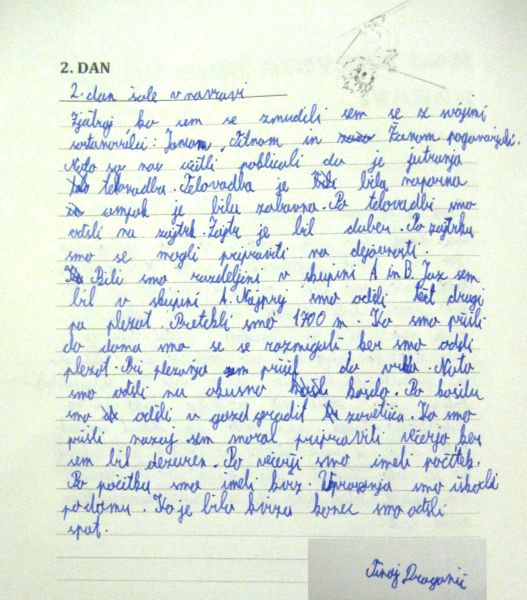 2. DAN
2. dan šole v naravi
Zjutraj ko sem se zbudili sem se z svojimi
sostanovalci: Janom, Tilnom in Žanom pogovarjali.
Nato so nas učitli poklicali da je jutranja
telovadba. Telovadba je bila naporna
ampak je bila zabavna. Po telovadbi smo
odšli na zajtrk. Zajtr je bil dober. Po zajtrku
smo se mogli pripraviti na dejavnosti.
Bili smo razdeljeni v skupini A in B. Jaz sem
bil v skupini A. Najprej smo odšli teč drugi
pa plezat. Pretekli smo 1700 m. Ko smo prišli
do doma smo se se razmigali ker smo odšli
plezat. Pri plezanju sem prišel do vrha. Nato
smo odšli na okusno kosilo. Po kosilu
smo odšli v gozd gradit zavetišča. Ko smo
prišli nazaj sem moral pripraviti večerjo ker
sem bil dežuren. Po večerji smo imeli počitek.
Po počitku smo imeli kviz. Vprašanja smo iskali
po domu. Ko je bilo kviza konec smo odšli
spat.
Tinej Draganić